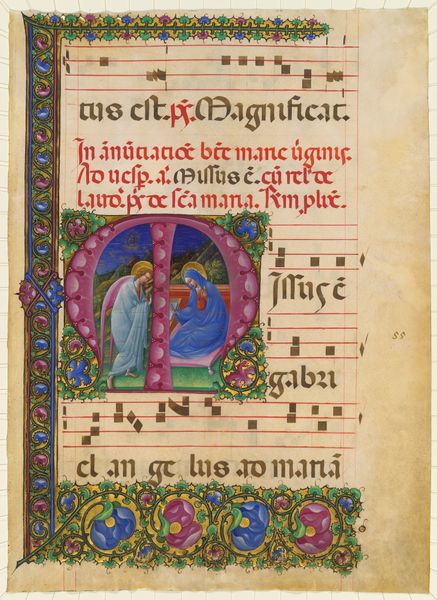 tus est. p̃s. Magnificat.
In ãnũtiatiõe bt̃e marie ũginis.
Ad uesp. añ. Missus ẽ. cũ rel' de
laud. p̃s de sc̃a maria. Tem. pl̃ve.
Missus ẽ
gabri
el an ge lus ad mariã
55